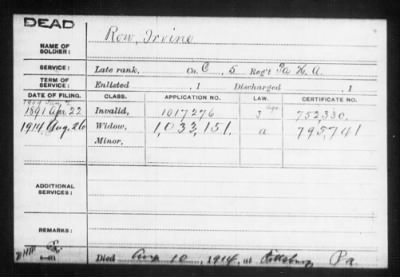 DEAD
NAME OF SOLDIER: Row, Irvine
SERVICE: Late rank, Co. C, 5 Reg't Pa H.A.
TERM OF SERVICE: Enlisted , 1 Discharged , 1
DATE OF FILING. CLASS. APPLICATION NO. LAW. CERTIFICATE NO.
1891 Apr. 22 Invalid, 1017276 752,330
1914 Aug. 26 Widow, 1,033,151 a 795,741
Minor,
ADDITIONAL SERVICES:
REMARKS:
Died Aug 10, 1914, at Pittsburg, Pa